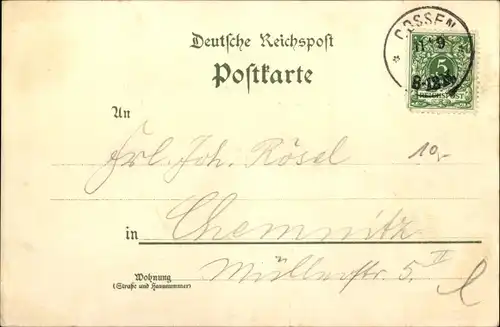 COSSEN
11 9
8-12V.
5
Deutsche Reichspost
Postkarte
An
Frl. Joh. Rösel
10,-
in Chemnitz
Wohnung
(Straße und Hausnummer)
Müllerstr. 5. II